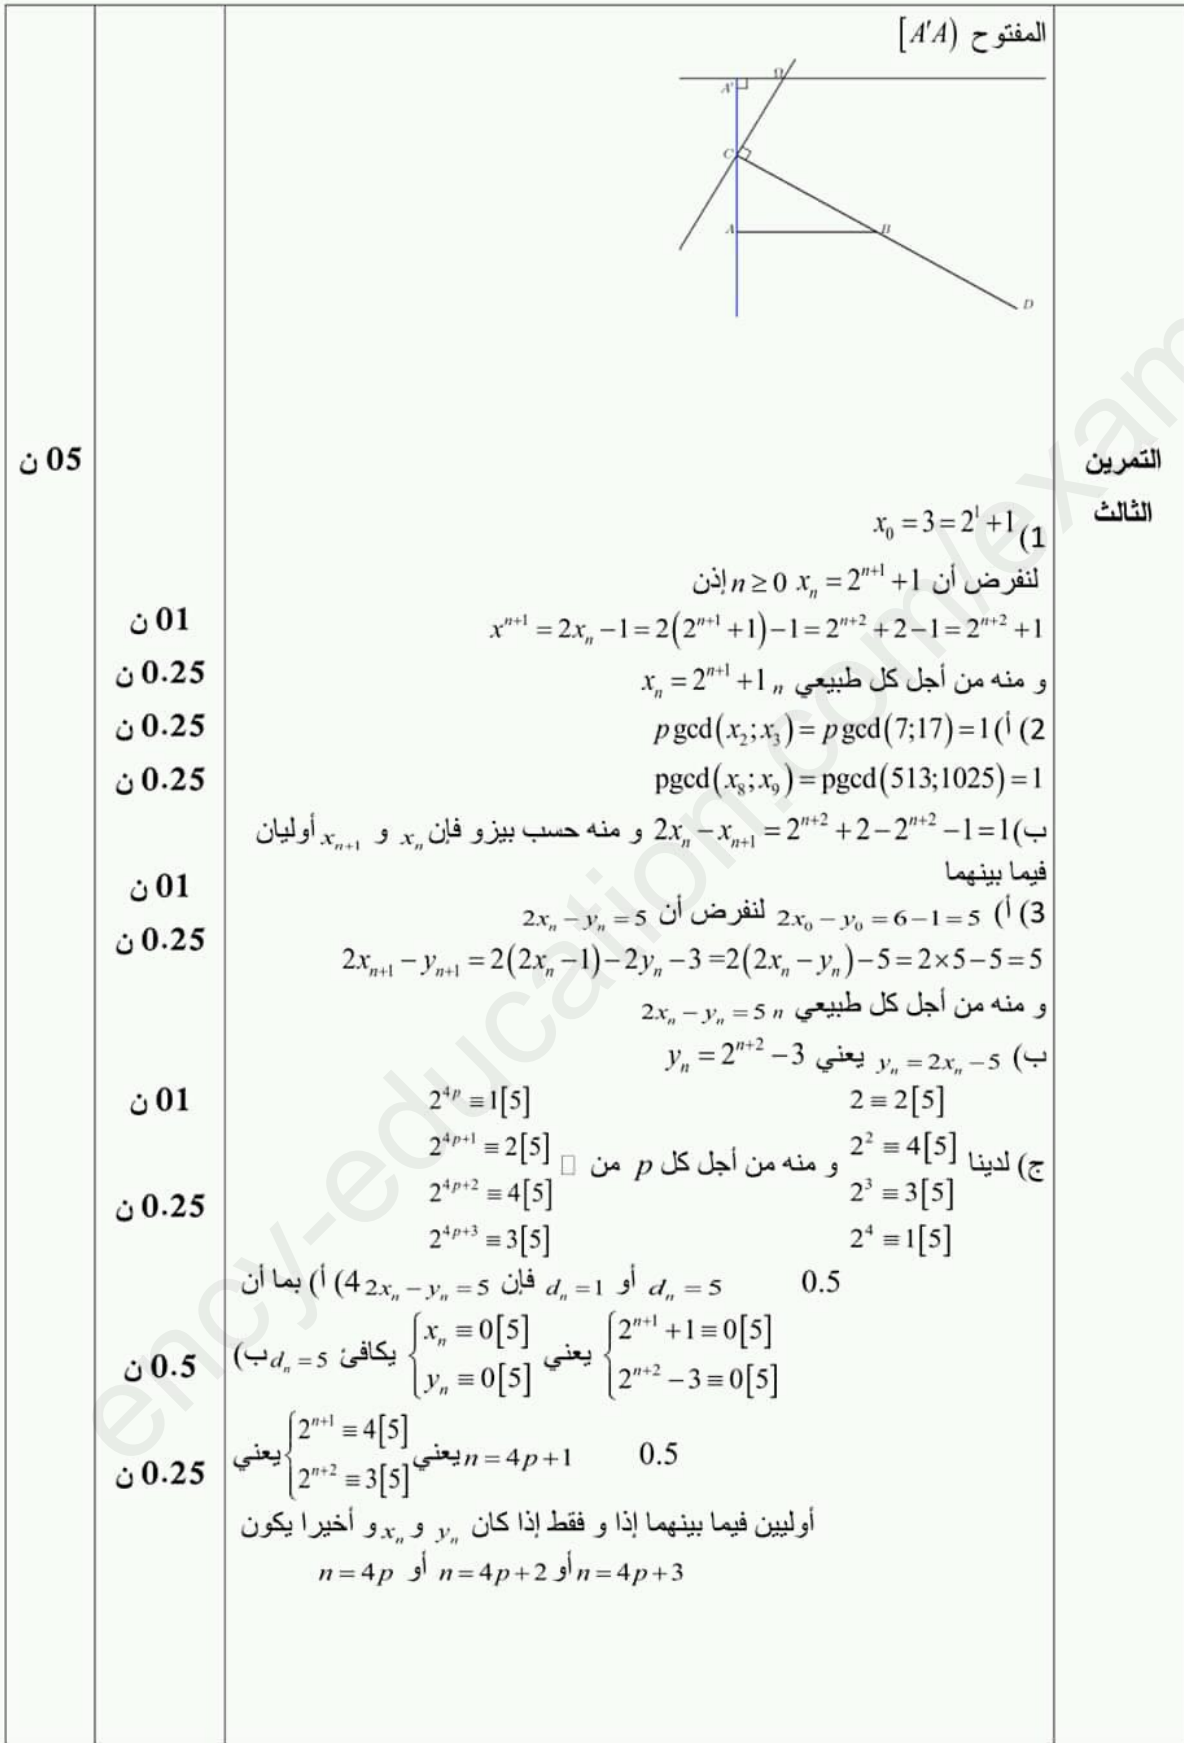 المفتوح [A'A)
Ω
A'
C
A B
D
05 ن
التمرين
الثالث
1) x_0 = 3 = 2^1 + 1
لنفرض أن x_n = 2^{n+1} + 1 n ≥ 0 إذن
01 ن
x^{n+1} = 2x_n − 1 = 2(2^{n+1} + 1) − 1 = 2^{n+2} + 2 − 1 = 2^{n+2} + 1
0.25 ن
و منه من أجل كل طبيعي n x_n = 2^{n+1} + 1
0.25 ن
2) أ) pgcd(x_2; x_3) = pgcd(7;17) = 1
0.25 ن
pgcd(x_8; x_9) = pgcd(513;1025) = 1
ب) 2x_n − x_{n+1} = 2^{n+2} + 2 − 2^{n+2} − 1 = 1 و منه حسب بيزو فإن x_n و x_{n+1} أوليان
فيما بينهما
01 ن
3) أ) 2x_0 − y_0 = 6 − 1 = 5 لنفرض أن 2x_n − y_n = 5
0.25 ن
2x_{n+1} − y_{n+1} = 2(2x_n − 1) − 2y_n − 3 = 2(2x_n − y_n) − 5 = 2×5 − 5 = 5
و منه من أجل كل طبيعي n 2x_n − y_n = 5
ب) y_n = 2x_n − 5 يعني y_n = 2^{n+2} − 3
01 ن
2 ≡ 2[5] 2^{4p} ≡ 1[5]
ج) لدينا 2^2 ≡ 4[5] و منه من أجل كل p من □ 2^{4p+1} ≡ 2[5]
0.25 ن
2^3 ≡ 3[5] 2^{4p+2} ≡ 4[5]
2^4 ≡ 1[5] 2^{4p+3} ≡ 3[5]
4) أ) بما أن 2x_n − y_n = 5 فإن d_n = 1 أو d_n = 5 0.5
0.5 ن
ب) d_n = 5 يكافئ {x_n ≡ 0[5] y_n ≡ 0[5] يعني {2^{n+1} + 1 ≡ 0[5] 2^{n+2} − 3 ≡ 0[5]
0.25 ن
يعني {2^{n+1} ≡ 4[5] 2^{n+2} ≡ 3[5] يعني n = 4p + 1 0.5
و أخيرا يكون x_n و y_n أوليين فيما بينهما إذا و فقط إذا كان
n = 4p أو n = 4p + 2 أو n = 4p + 3
ency-education.com/exam